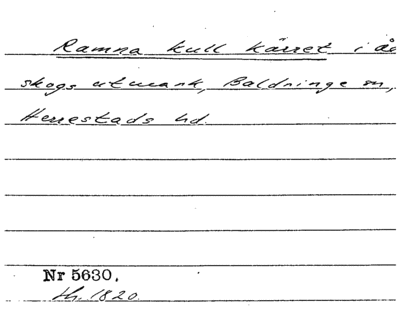 Ramna kull kärret i
skogs utmark, Baldringe sn,
Herrestads hd.
Nr 5630.
1820.